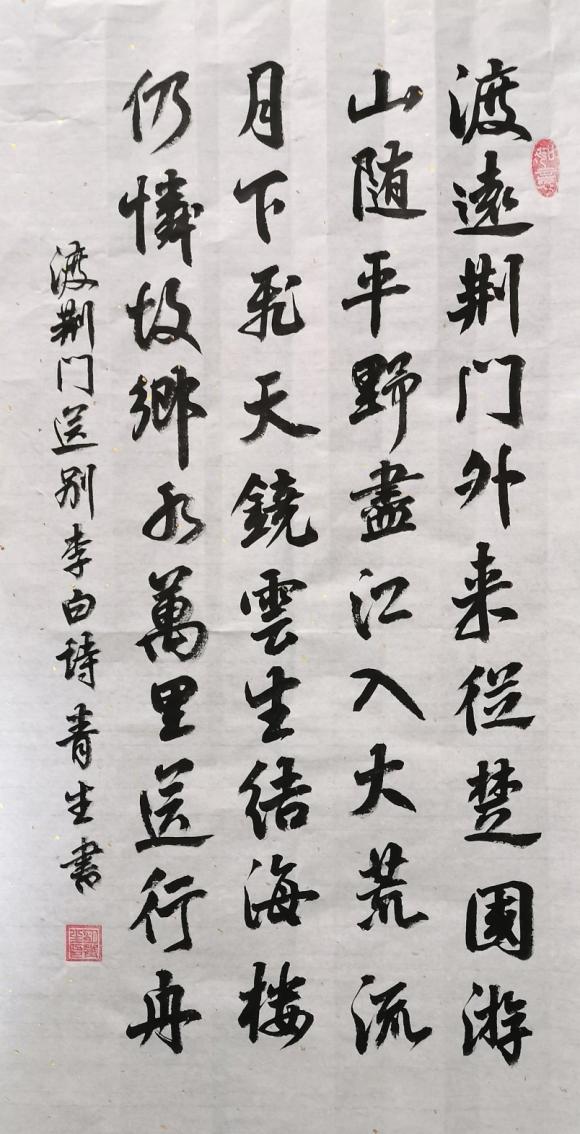 渡遠荆门外来從楚國游
山随平野盡江入大荒流
月下飛天鏡雲生结海楼
仍憐故鄉水萬里送行舟
渡荆门送别李白诗青生書